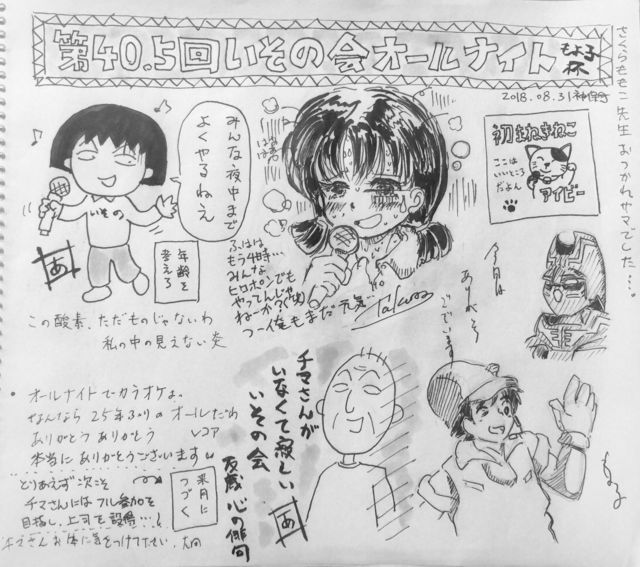 第40.5回いその会オールナイト
もよ子
杯
2018.08.31
さくらももこ先生おつかれサマでした…。
みんな夜中まで
よくやるねえ
いその
年齢を
考えろ
あ
初まねきねこ
ここは
いいところ
だよん
アイビー
ふはは
もう4時…
みんな
ヒロポンでも
やってんじゃ
ねーか?(笑)
つー俺もまだ元気…
Takuro
今日は
ありがとう
ございます
この酸素、ただものじゃないわ
私の中の見えない炎
・オールナイトでカラオケよ。
なんなら25年ぶりのオールだわ
ありがとう ありがとう
本当に ありがとうございます
とりあえず次こそ
チマさんにはフル参加を
目指し、上司で設得…!
来月に
つづく
チマさんが
いなくて寂しい
いその会
友蔵 心の俳句
あ